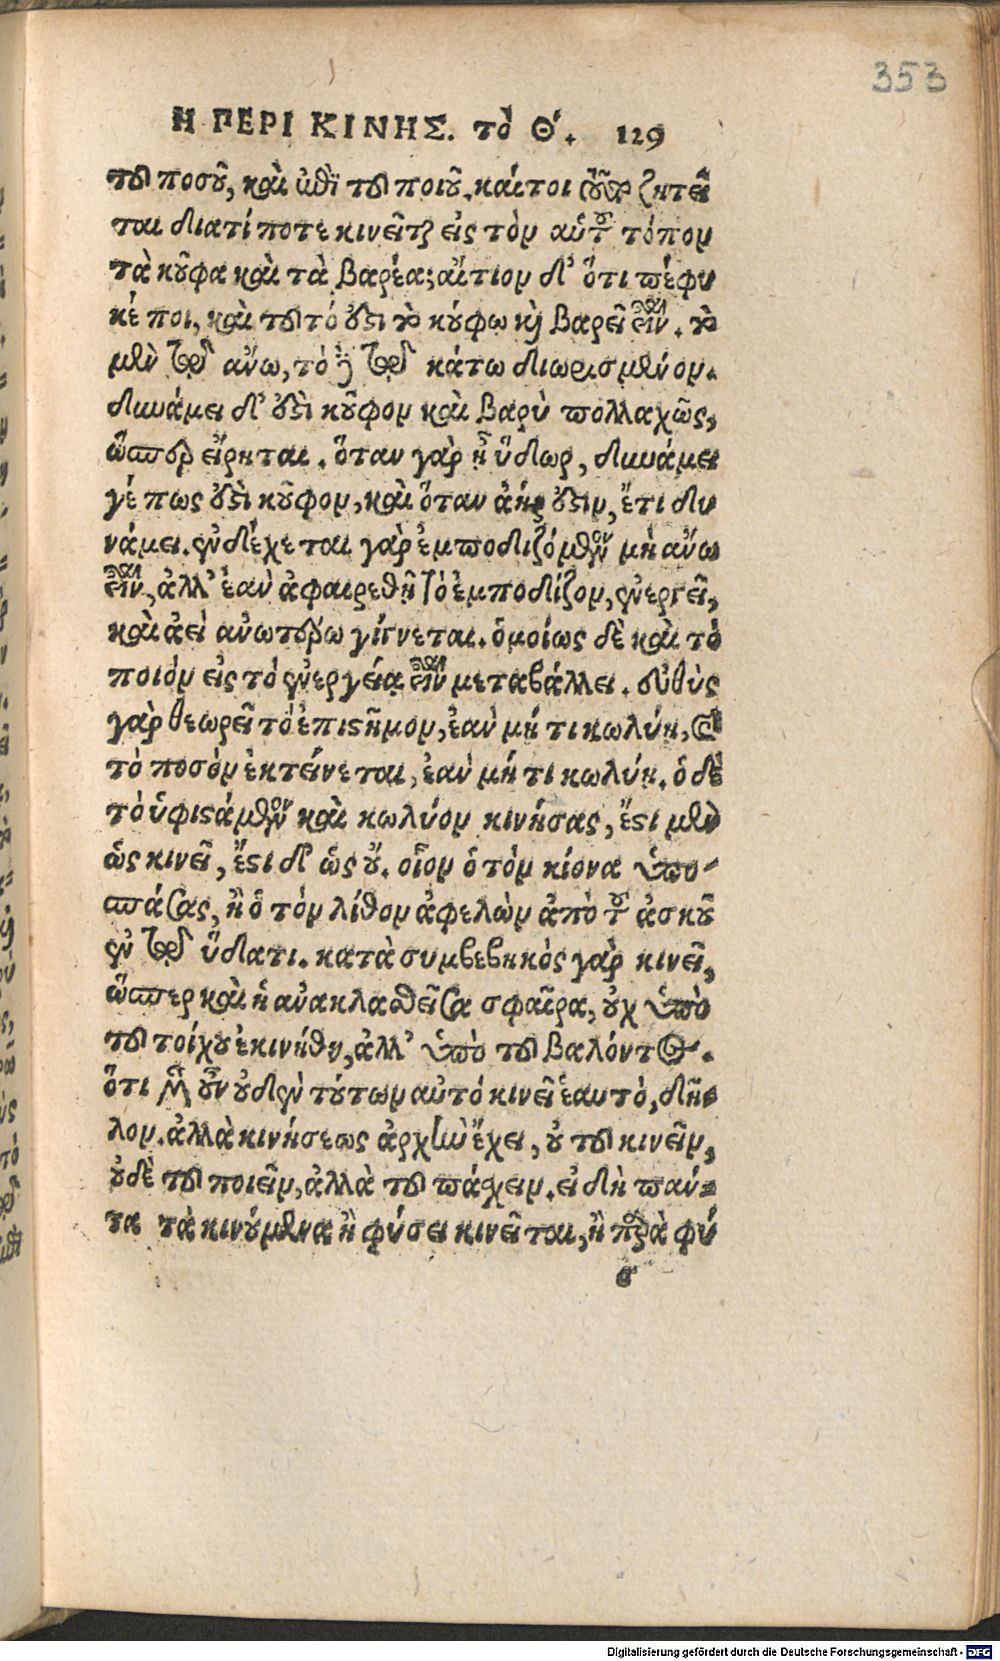 353
Η ΠΕΡΙ ΚΙΝΗΣ. τὸ Θ΄. 129
τοῦ ποσοῦ, καὶ ἐπὶ τοῦ ποιοῦ. καίτοι τοῦτο ζητεῖ
ται διατί ποτε κινεῖται εἰς τὸν αὑτοῦ τόπον
τὰ κοῦφα καὶ τὰ βαρέα; αἴτιον δ' ὅτι πέφυ
κέ ποι, καὶ τοῦτό ὅϛι τὸ κούφῳ καὶ βαρεῖ εἶναι. τὸ
μὲν τῷ ἄνω, τὸ δὲ τῷ κάτω διωρισμένον.
δυνάμει δ' ὅϛὶ κοῦφον καὶ βαρὺ πολλαχῶς,
ὥσπερ εἴρηται. ὅταν γὰρ ᾖ ὕδωρ, δυνάμει
γέ πως ὅϛὶ κοῦφον, καὶ ὅταν ἀὴρ ὅϛιν, ἔτι δυ
νάμει. ἐνδέχεται γὰρ ἐμποδιζόμενον μὴ ἄνω
εἶναι, ἀλλ' ἐὰν ἀφαιρεθῇ τὸ ἐμποδίζον, ἐνεργεῖ,
καὶ ἀεὶ ἀνωτέρω γίγνεται. ὁμοίως δὲ καὶ τὸ
ποιὸν εἰς τὸ ἐνεργείᾳ εἶναι μεταβάλλει. εὐθὺς
γὰρ θεωρεῖ τὸ ἐπιϛῆμον, ἐὰν μή τι κωλύῃ, καὶ
τὸ ποσὸν ἐκτείνεται, ἐὰν μή τι κωλύῃ. ὁ δὲ
τὸ ὑφιϛάμενον καὶ κωλύον κινήσας, ἔϛι μὲν
ὡς κινεῖ, ἔϛι δ' ὡς οὔ. οἷον ὁ τὸν κίονα ὑπο-
σπάσας, ἢ ὁ τὸν λίθον ἀφελὼν ἀπὸ τοῦ ἀσκοῦ
ἐν τῷ ὕδατι. κατὰ συμβεβηκὸς γὰρ κινεῖ,
ὥσπερ καὶ ἡ ἀνακλασθεῖσα σφαῖρα, οὐχ ὑπὸ
τοῦ τοίχου ἐκινήθη, ἀλλ' ὑπὸ τοῦ βαλόντος.
ὅτι μὲν οὖν οὐδὲν τούτων αὐτὸ κινεῖ ἑαυτὸ, δῆ-
λον. ἀλλὰ κινήσεως ἀρχὴν ἔχει, οὐ τοῦ κινεῖν,
οὐδὲ τοῦ ποιεῖν, ἀλλὰ τοῦ πάσχειν. εἰ δὴ πάν-
τα τὰ κινούμενα ἢ φύσει κινεῖται, ἢ παρὰ φύ
σ
Digitalisierung gefördert durch die Deutsche Forschungsgemeinschaft - DFG